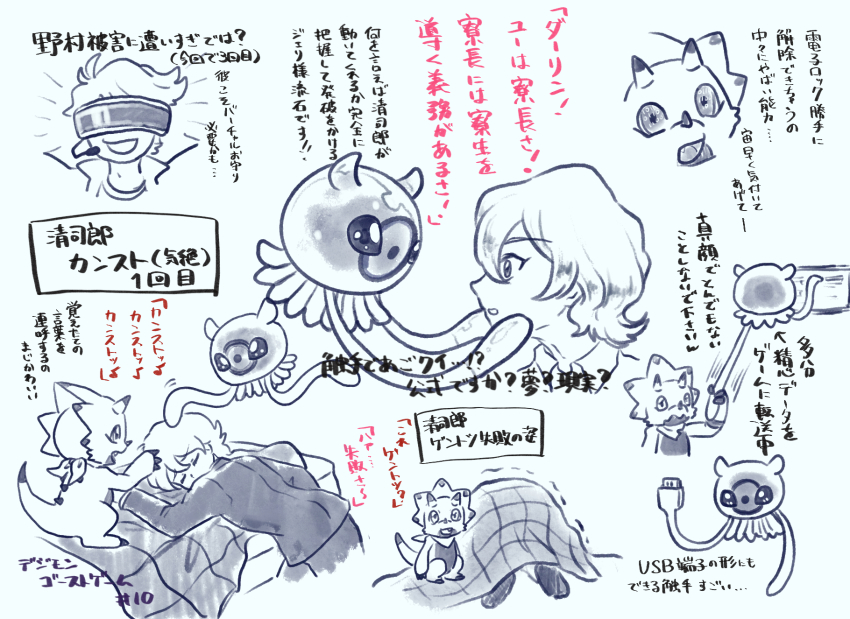 野村被害に遭いすぎでは?
(今回で3回目)
彼こそバーチャルお守り
必要かも…
何を言えば清司郎が
動いてくれるか完全に
把握して発破をかける
ジェリ様流石です!!
「ダーリン!
ユーは寮長さ!
寮長には寮生を
導く義務があるさ!」
電子ロック勝手に
解除できちゃうの
中々にやばい能力…
宙早く気付いて
あげてー
清司郎
カンスト(気絶)
1回目
「カンストッ♪
カンストッ♪
カンストッ♪」
覚えたての
言葉を
連呼するの
まじかわいい
触手であごクイッ!?
公式ですか?夢?現実?
真顔でとんでもない
ことしないで下さいん
多分
精心データを
ゲームに転送中
清司郎
ゲントツ失敗の姿
「これゲントツ?」
「ハァ…
失敗さ〜」
USB端子の形にも
できる触手すごい…
デジモン
ゴーストゲーム
#10